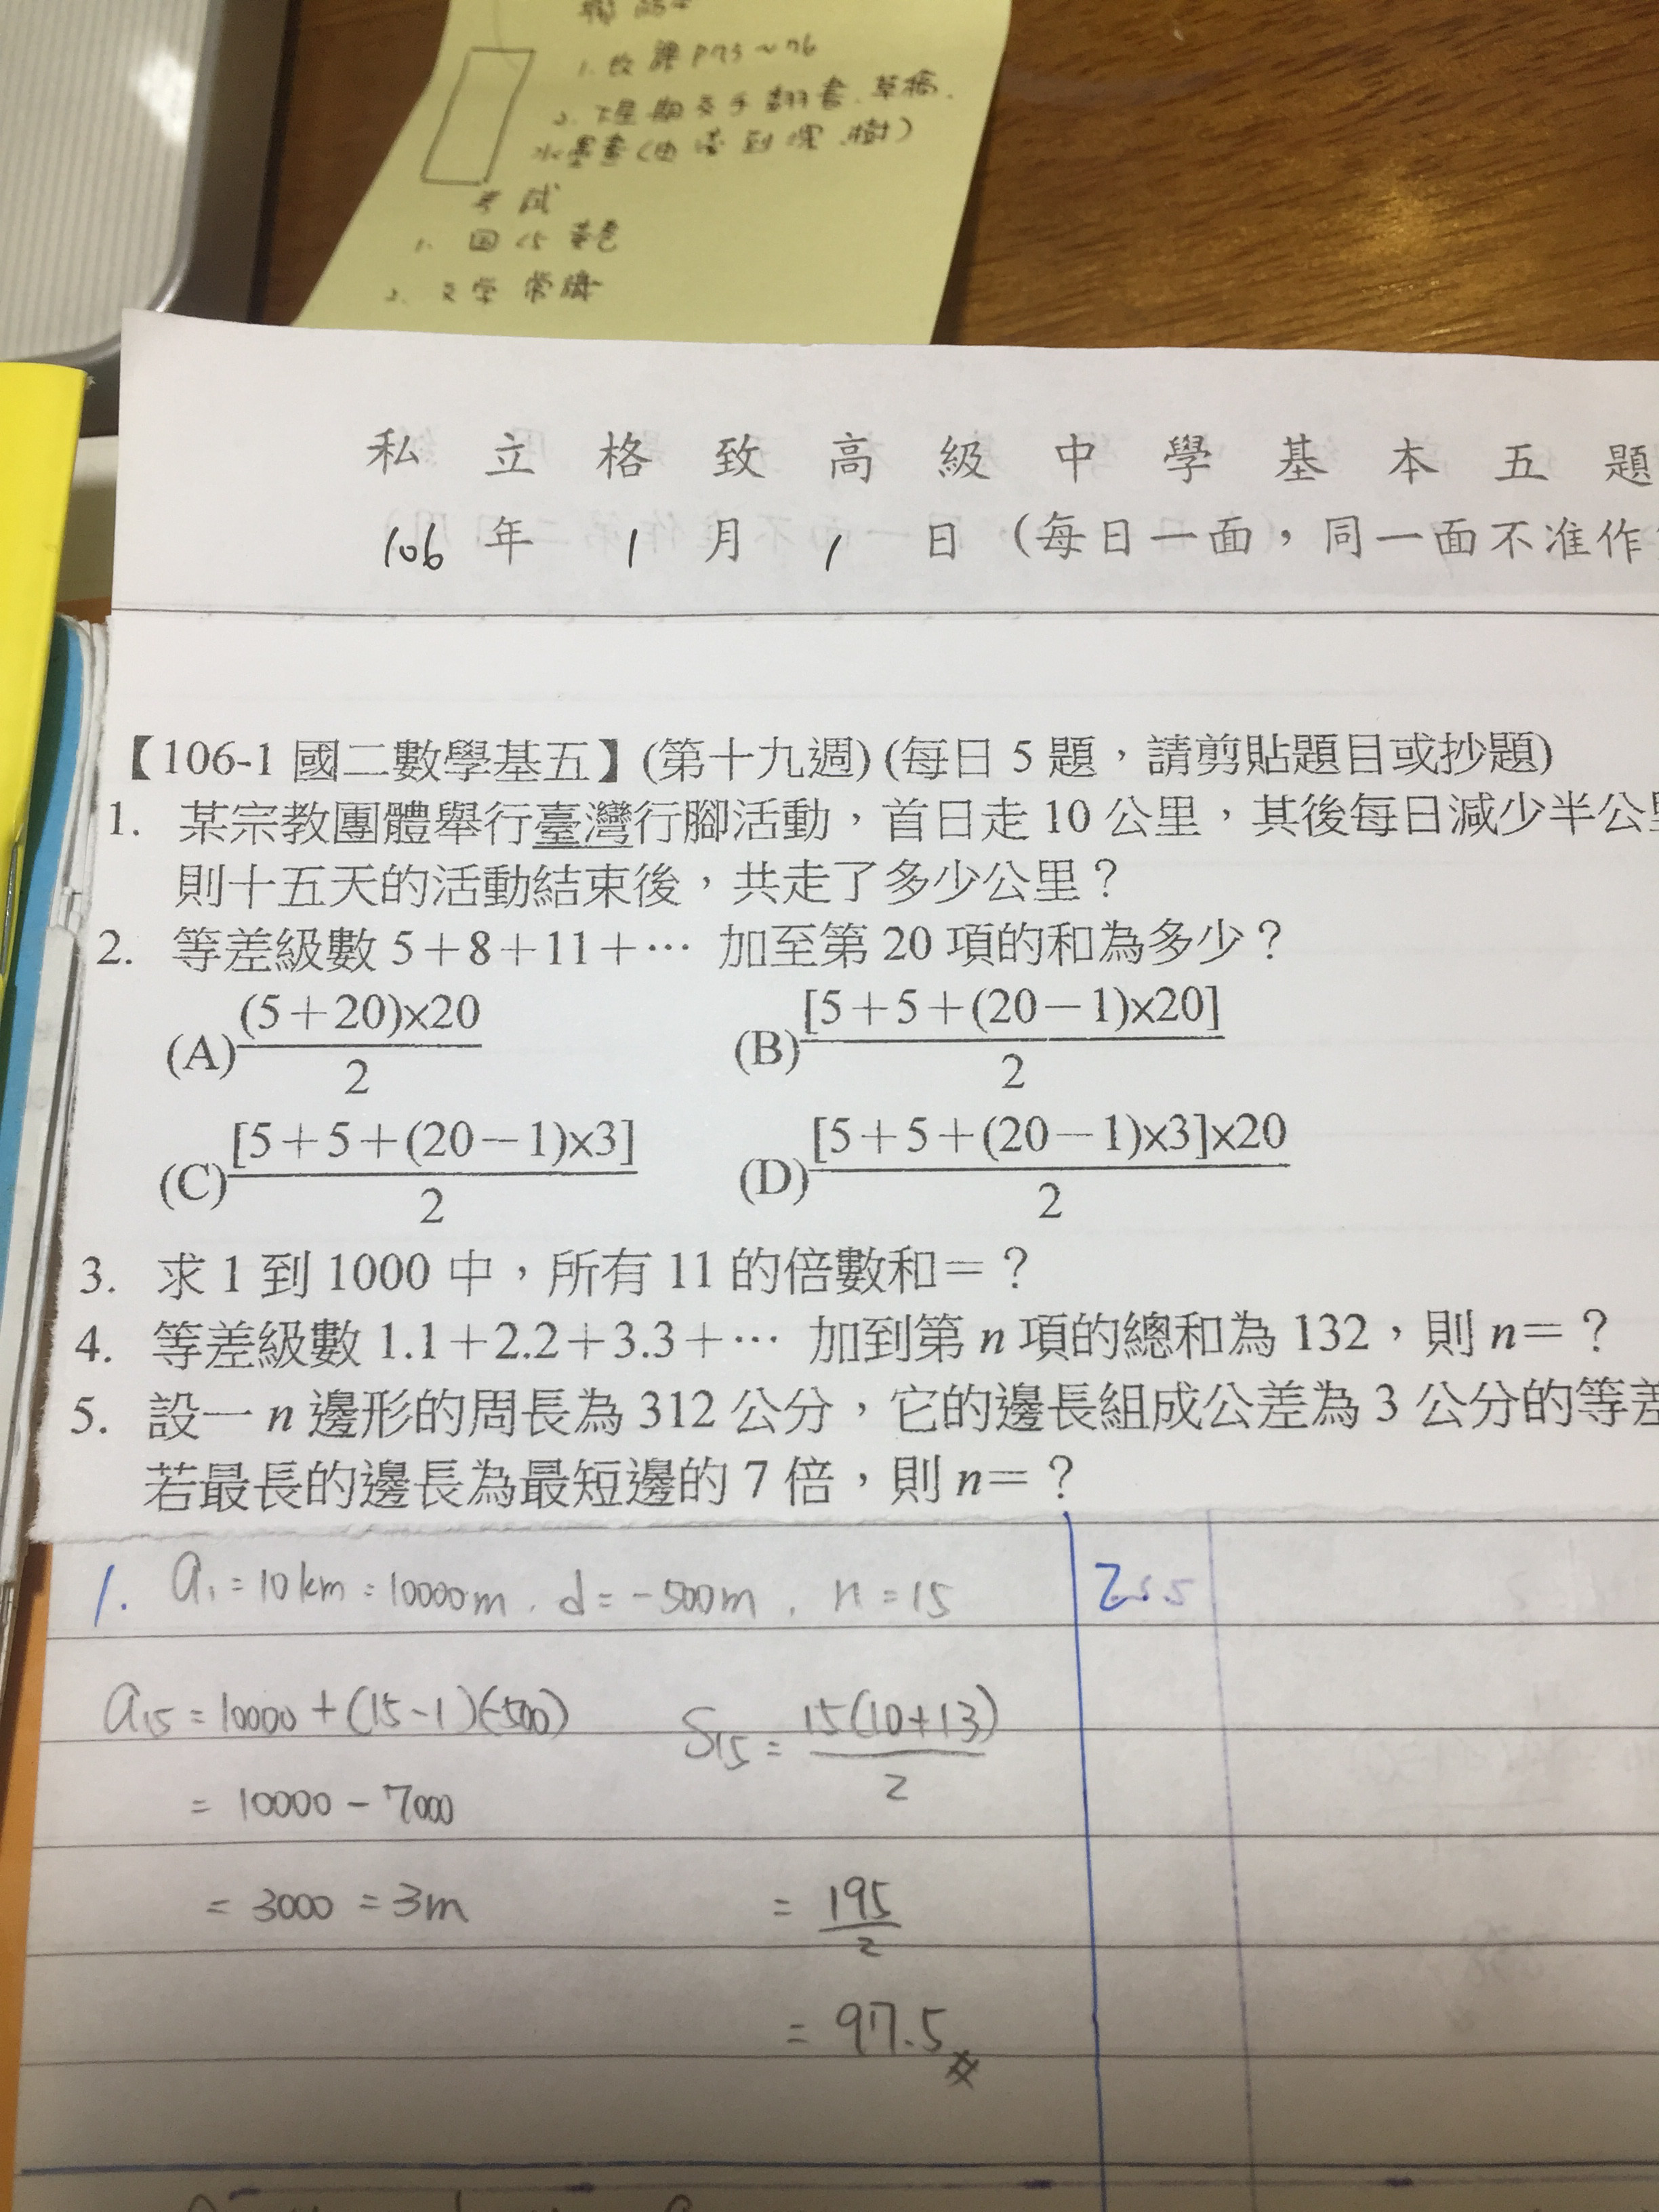 1. 改課P75~76
2. 下星期交手翻書.草稿.
考試
1. 国 C5 黃色
2. 文學常識
私立格致高級中學基本五題
106年1月1日(每日一面，同一面不准作
【106-1 國二數學基五】(第十九週)(每日 5 題，請剪貼題目或抄題)
1. 某宗教團體舉行臺灣行腳活動，首日走 10 公里，其後每日減少半公里
則十五天的活動結束後，共走了多少公里？
2. 等差級數 5＋8＋11＋… 加至第 20 項的和為多少？
(A) (5＋20)×20 / 2 (B) [5＋5＋(20－1)×20] / 2
(C) [5＋5＋(20－1)×3] / 2 (D) [5＋5＋(20－1)×3]×20 / 2
3. 求 1 到 1000 中，所有 11 的倍數和＝？
4. 等差級數 1.1＋2.2＋3.3＋… 加到第 n 項的總和為 132，則 n＝？
5. 設一 n 邊形的周長為 312 公分，它的邊長組成公差為 3 公分的等差
若最長的邊長為最短邊的 7 倍，則 n＝？
1. a₁=10km=10000m. d=-500m, n=15
a₁₅=10000+(15-1)(-500) S₁₅= 15(10+13) / 2
= 10000-7000
= 3000 = 3m = 195 / 2
= 97.5